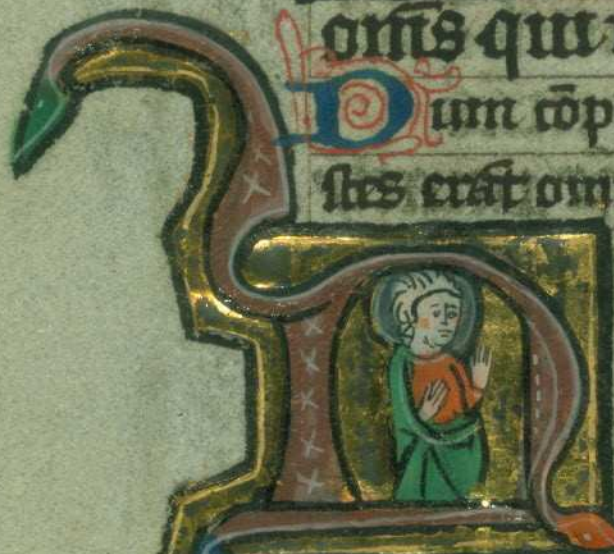 om̄s qui
Dum cōp
stes erāt om